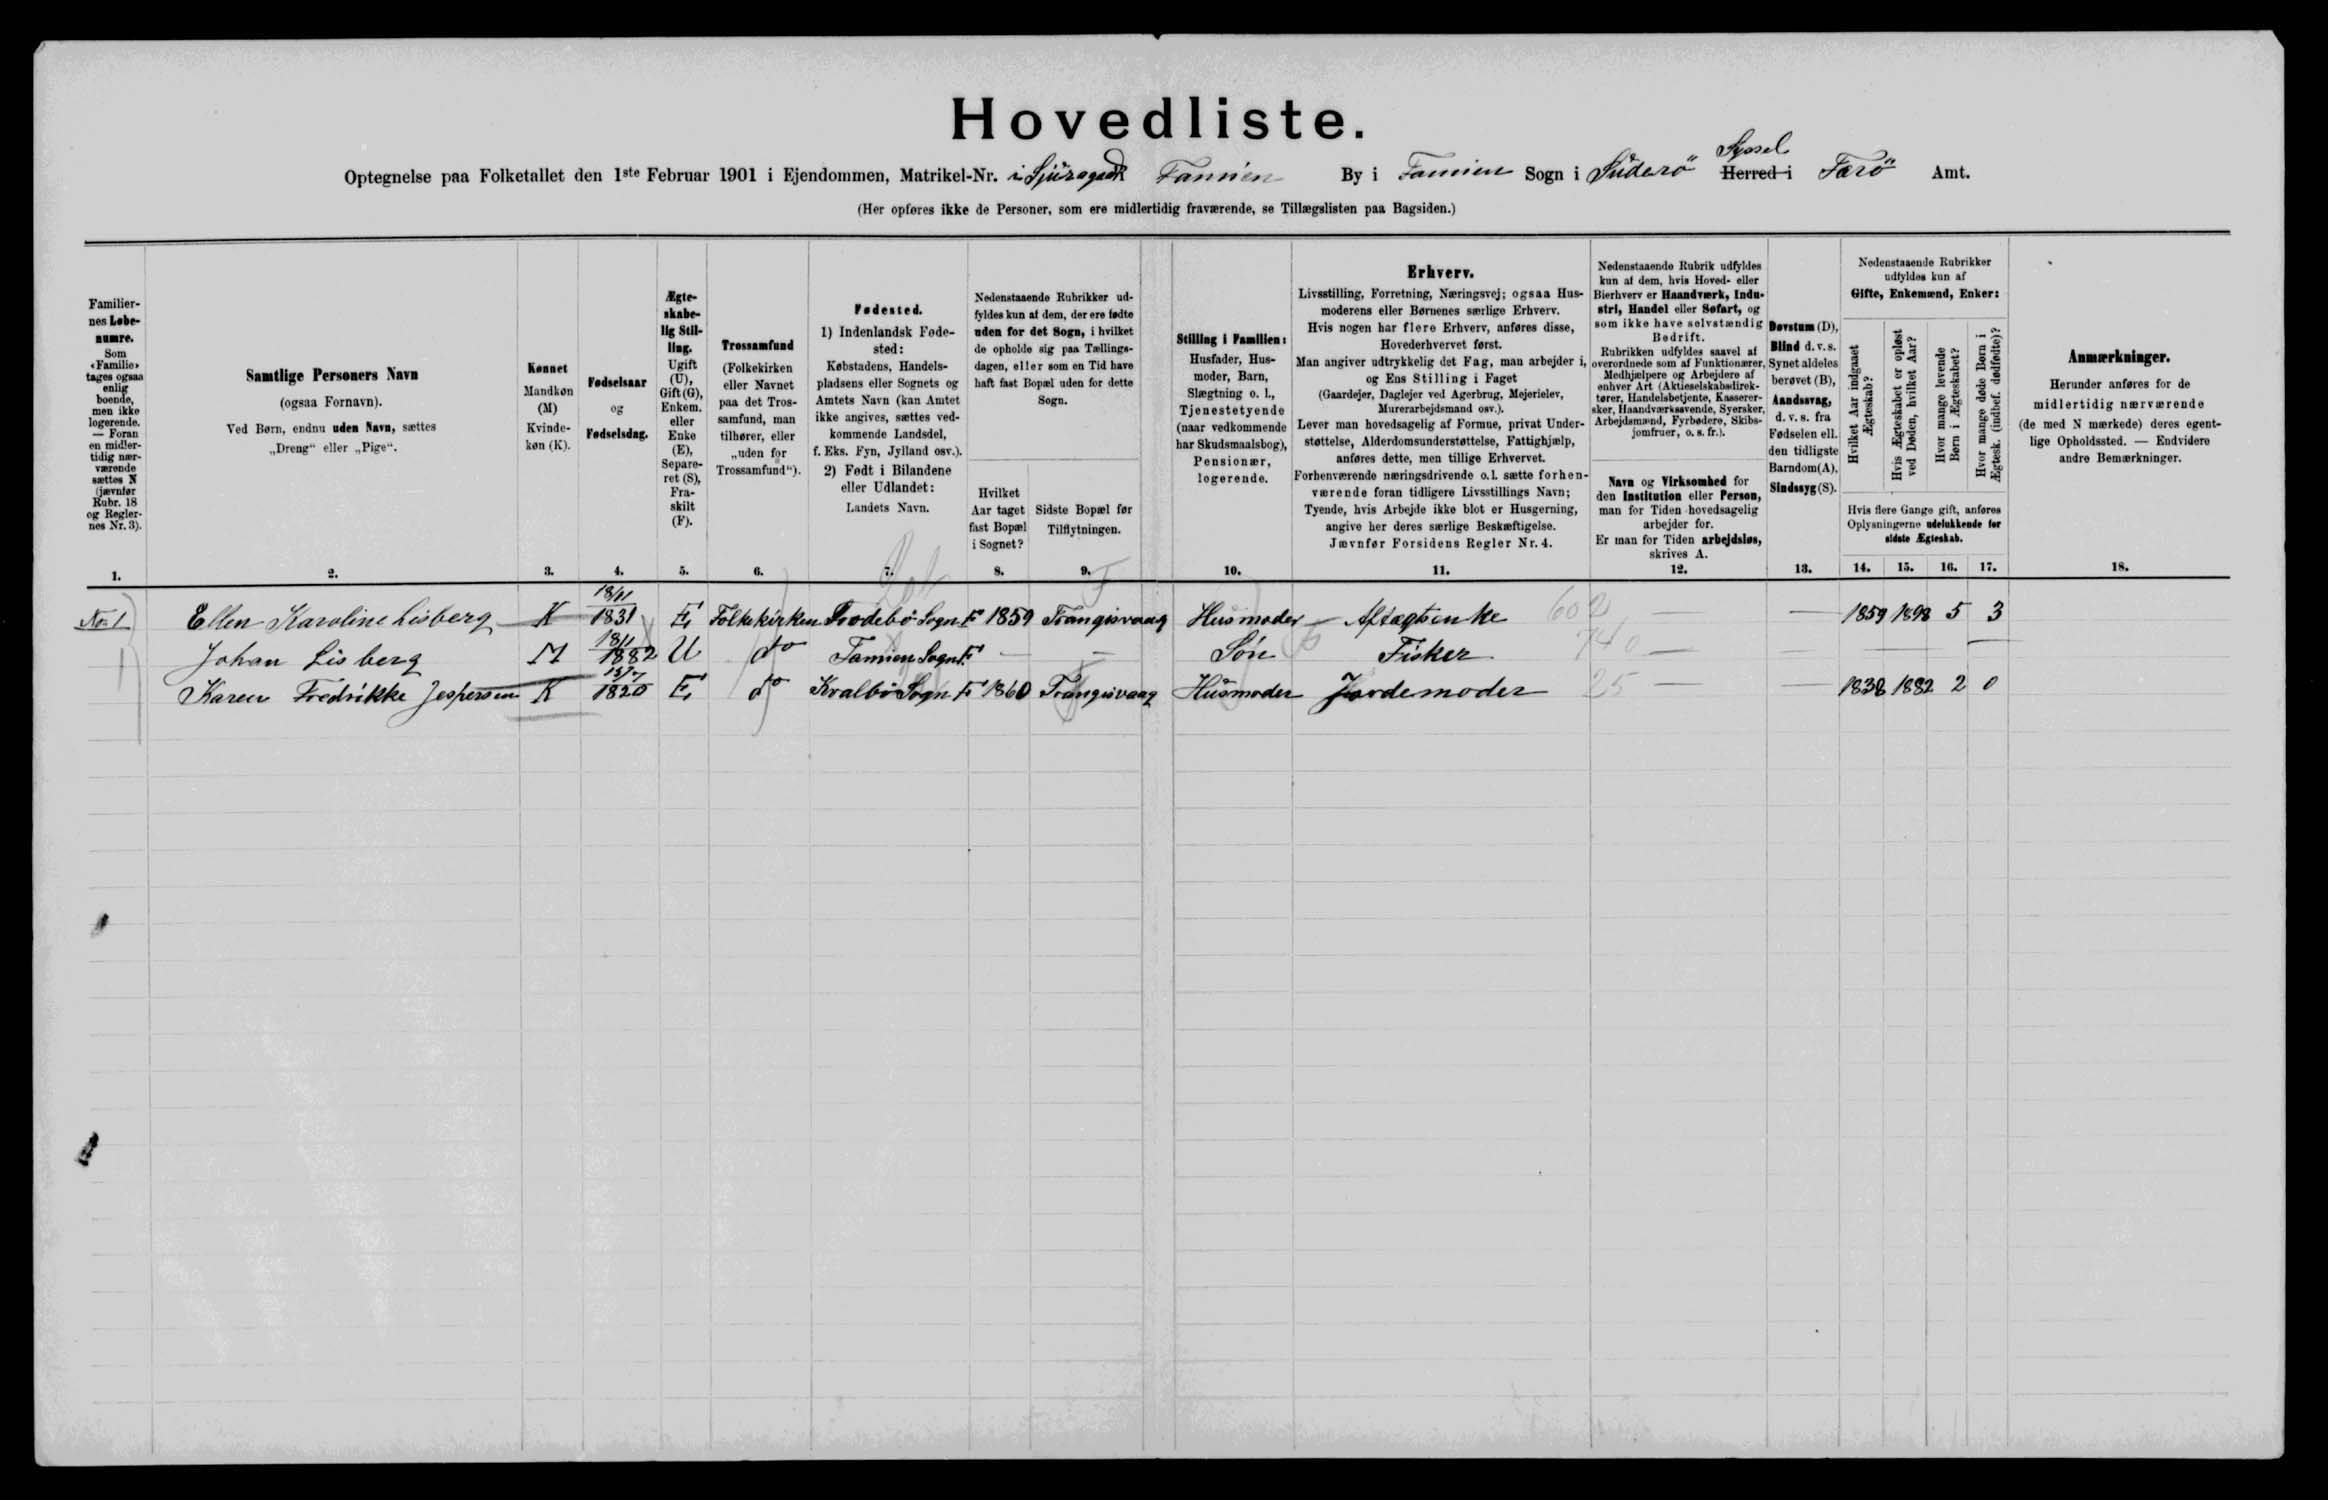 Hovedliste.
Optegnelse paa Folketallet den 1ste Februar 1901 i Ejendommen, Matrikel-Nr. i Sjúragard Famien By i Famien Sogn i Suderö Syssel Herred i Færö Amt.
(Her opføres ikke de Personer, som ere midlertidig fraværende, se Tillægslisten paa Bagsiden.)
Familiernes Løbenumre.
Som «Familie» tages ogsaa enlig boende, men ikke logerende. — Foran en midlertidig nærværende sættes N (jævnfør Rubr. 18 og Reglernes Nr. 3).
Samtlige Personers Navn
(ogsaa Fornavn).
Ved Børn, endnu uden Navn, sættes
„Dreng“ eller „Pige“.
Kønnet
Mandkøn (M)
Kvindekøn (K).
Fødselsaar
og
Fødselsdag.
Ægteskabelig Stilling.
Ugift (U), Gift (G), Enkem. eller Enke (E), Separeret (S), Fraskilt (F).
Trossamfund
(Folkekirken eller Navnet paa det Trossamfund, man tilhører, eller „uden for Trossamfund“).
Fødested.
1) Indenlandsk Fødested:
Købstadens, Handelspladsens eller Sognets og Amtets Navn (kan Amtet ikke angives, sættes vedkommende Landsdel, f. Eks. Fyn, Jylland osv.).
2) Født i Bilandene eller Udlandet:
Landets Navn.
Nedenstaaende Rubrikker udfyldes kun af dem, der ere fødte uden for det Sogn, i hvilket de opholde sig paa Tællingsdagen, eller som en Tid have haft fast Bopæl uden for dette Sogn.
Hvilket Aar taget fast Bopæl i Sognet?
Sidste Bopæl før Tilflytningen.
Stilling i Familien:
Husfader, Husmoder, Barn, Slægtning o. l., Tjenestetyende (naar vedkommende har Skudsmaalsbog), Pensionær, logerende.
Erhverv.
Livsstilling, Forretning, Næringsvej; ogsaa Husmoderens eller Børnenes særlige Erhverv.
Hvis nogen har flere Erhverv, anføres disse, Hovederhvervet først.
Man angiver udtrykkelig det Fag, man arbejder i, og Ens Stilling i Faget
(Gaardejer, Daglejer ved Agerbrug, Mejerielev, Murerarbejdsmand osv.).
Lever man hovedsagelig af Formue, privat Understøttelse, Alderdomsunderstøttelse, Fattighjælp, anføres dette, men tillige Erhvervet.
Forhenværende næringsdrivende o. l. sætte forhenværende foran tidligere Livsstillings Navn;
Tyende, hvis Arbejde ikke blot er Husgerning, angive her deres særlige Beskæftigelse.
Jævnfør Forsidens Regler Nr. 4.
Nedenstaaende Rubrik udfyldes kun af dem, hvis Hoved- eller Bierhverv er Haandværk, Industri, Handel eller Søfart, og som ikke have selvstændig Bedrift.
Rubrikken udfyldes saavel af overordnede som af Funktionærer, Medhjælpere og Arbejdere af enhver Art (Aktieselskabsdirektører, Handelsbetjente, Kasserersker, Haandværkssvende, Syersker, Arbejdsmænd, Fyrbødere, Skibsjomfruer, o. s. fr.).
Navn og Virksomhed for den Institution eller Person, man for Tiden hovedsagelig arbejder for.
Er man for Tiden arbejdsløs, skrives A.
Døvstum (D), Blind d. v. s. Synet aldeles berøvet (B), Aandssvag, d. v. s. fra Fødselen ell. den tidligste Barndom (A), Sindssyg (S).
Nedenstaaende Rubrikker udfyldes kun af
Gifte, Enkemænd, Enker:
Hvilket Aar indgaaet Ægteskab?
Hvis Ægteskabet er opløst ved Døden, hvilket Aar?
Hvor mange levende Børn i Ægteskabet?
Hvor mange døde Børn i Ægtesk. (indbef. dødfødte)?
Hvis flere Gange gift, anføres Oplysningerne udelukkende for sidste Ægteskab.
Anmærkninger.
Herunder anføres for de midlertidig nærværende (de med N mærkede) deres egentlige Opholdssted. — Endvidere andre Bemærkninger.
1. 2. 3. 4. 5. 6. 7. 8. 9. 10. 11. 12. 13. 14. 15. 16. 17. 18.
No 1 Ellen Karoline Lisberg K 18/11 1831 E Folkekirken Frodebö Sogn F 1859 Trangisvaag Husmoder Aftægtsenke 602 — — 1859 1898 5 3
Johan Lisberg M 18/11 1882 U do Famien Sogn F — — Sön Fisker 740 — — — — — —
Karen Fredrikke Jespersen K 13/7 1820 E do Kvalbö Sogn F 1860 Trangisvaag Husmoder Jordemoder 25 — — 1838 1882 2 0